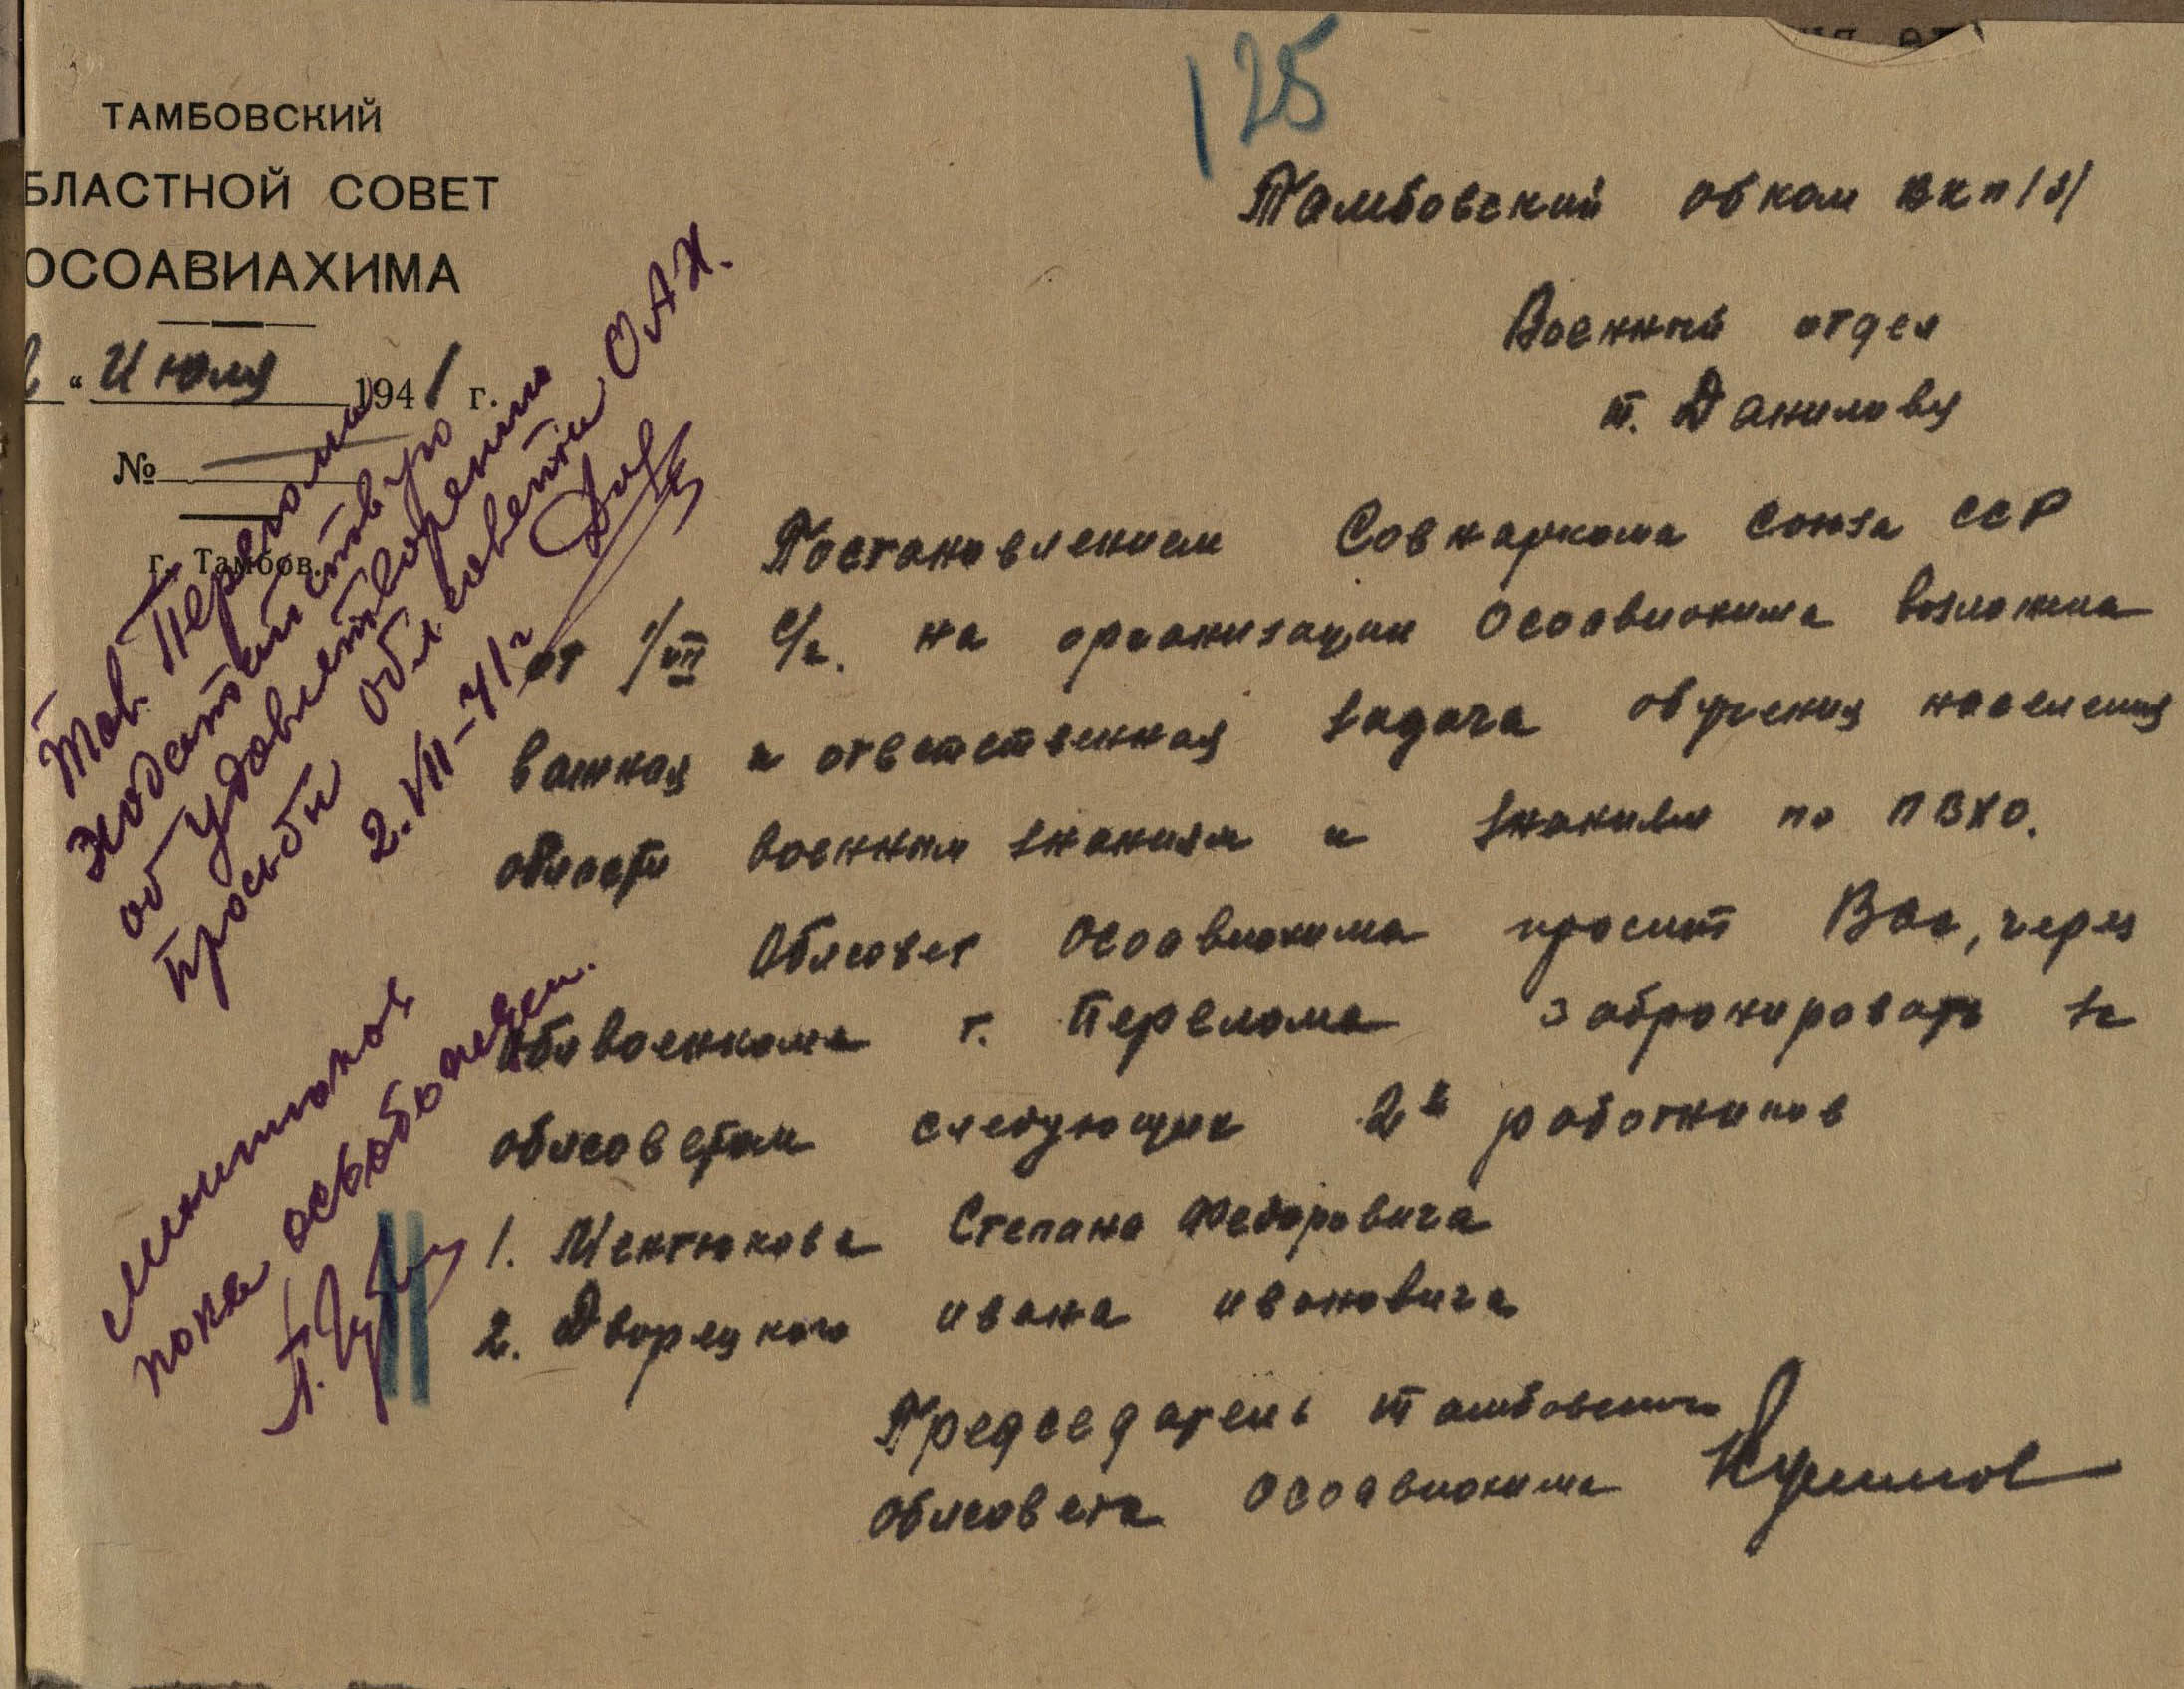 125
ТАМБОВСКИЙ
БЛАСТНОЙ СОВЕТ
ОСОАВИАХИМА
" Июля 1941 г.
№
г. Тамбов.
Тамбовский обком ВКП/б/
Военный отдел
т. Данилову
Постановлением Совнаркома Союза ССР
от 1/VII с/г. на организации Осоавиахима возложена
важная и ответственная задача обучения населения
области военным знаниям и знаниям по ПВХО.
Облсовет Осоавиахима просит Вас, через
облвоенкома т. Перелома забронировать за
облсоветом следующих 2х работников
1. Ментюкова Степана Федоровича
2. Дворецкого Ивана Ивановича
Председатель Тамбовского
облсовета Осоавиахима
Тов. Перелом
ходатайствую
об удовлетворении
просьбы облсовета ОАХ.
2.VII-41г
пока освобожден.